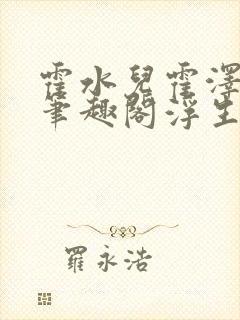 霍水兒霍澤
筆趣閣浮生
羅永浩